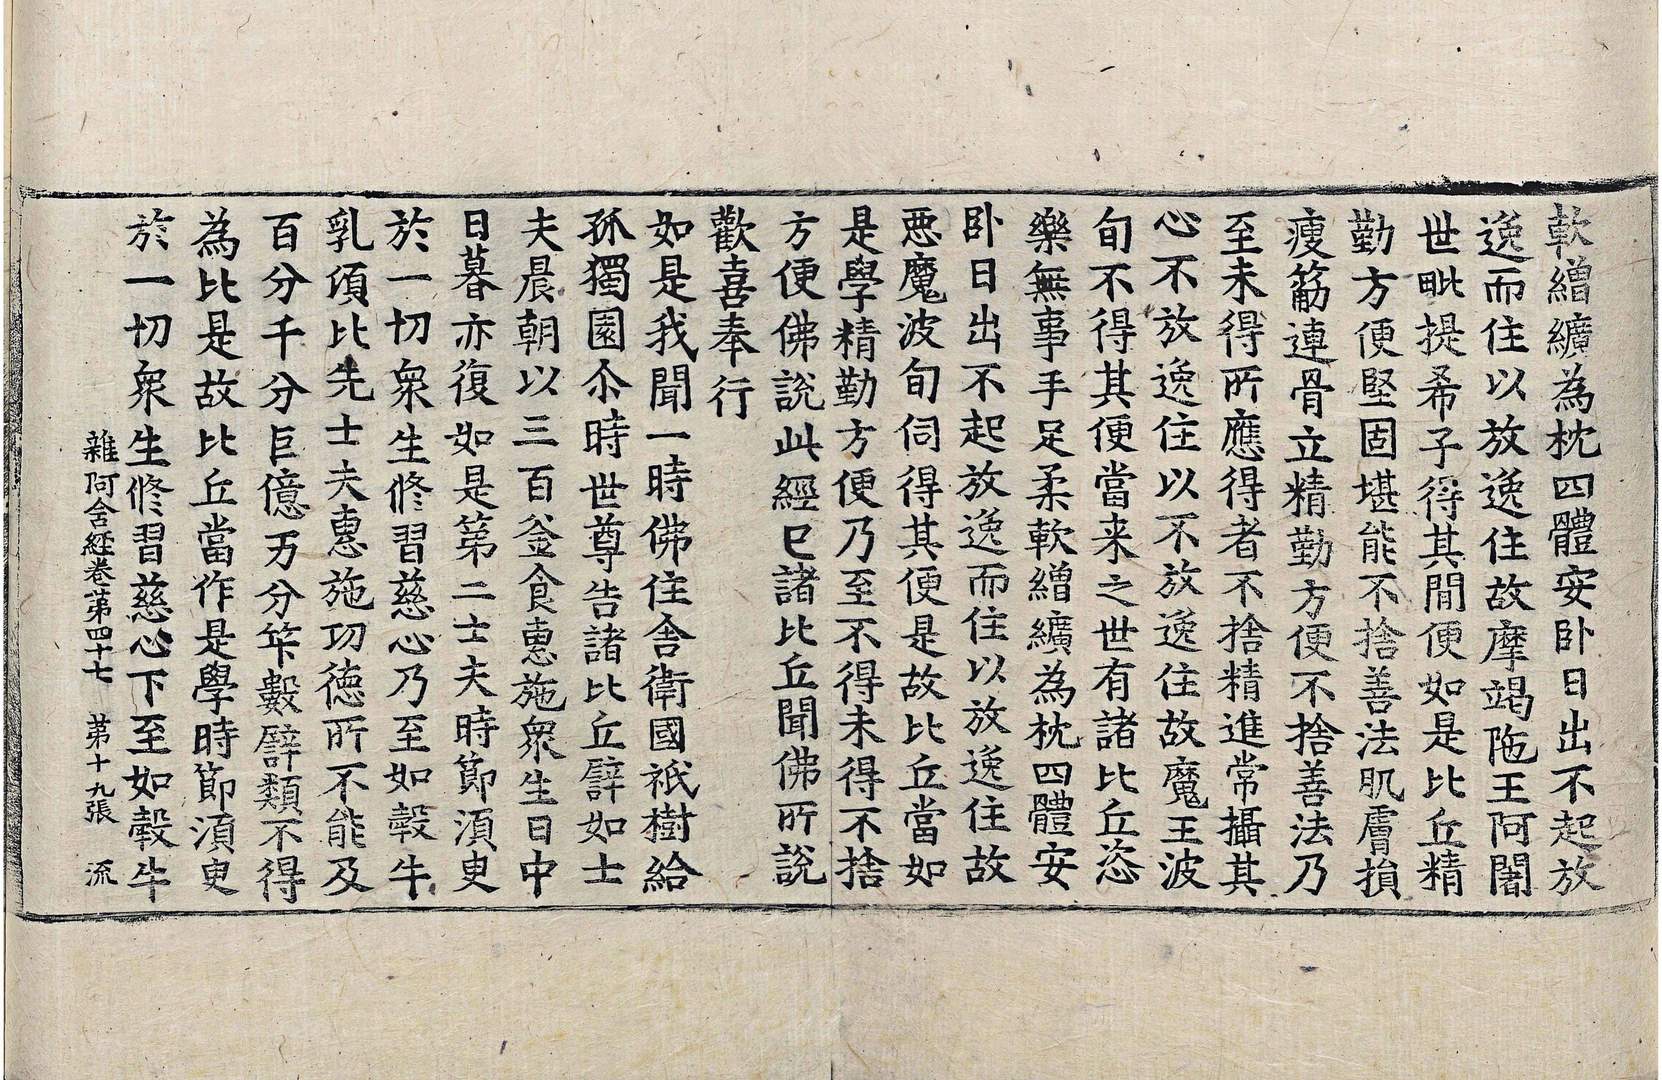 軟繒纊為枕四體安卧日出不起放
逸而住以放逸住故摩竭陁王阿闍
世毗提希子得其閒便如是比丘精
勤方便堅固堪能不捨善法肌膚損
瘦筋連骨立精勤方便不捨善法乃
至未得所應得者不捨精進常攝其
心不放逸住以不放逸住故魔王波
旬不得其便當来之世有諸比丘恣
樂無事手足柔軟繒纊為枕四體安
卧日出不起放逸而住以放逸住故
悪魔波旬伺得其便是故比丘當如
是學精勤方便乃至不得未得不捨
方便佛說此經已諸比丘聞佛所說
歡喜奉行
如是我聞一時佛住舍衛國祇樹給
孤獨園尒時世尊告諸比丘譬如士
夫晨朝以三百釜食惠施衆生日中
日暮亦復如是第二士夫時節湏臾
於一切衆生修習慈心乃至如㲉牛
乳頃比先士夫惠施功徳所不能及
百分千分巨億万分筭數譬類不得
為比是故比丘當作是學時節湏臾
於一切衆生修習慈心下至如㲉牛
雜阿含経卷苐四十七 苐十九張 流